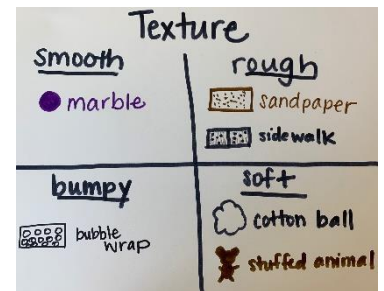 Texture
smooth
marble
rough
sandpaper
sidewalk
bumpy
bubble
wrap
soft
cotton ball
stuffed animal